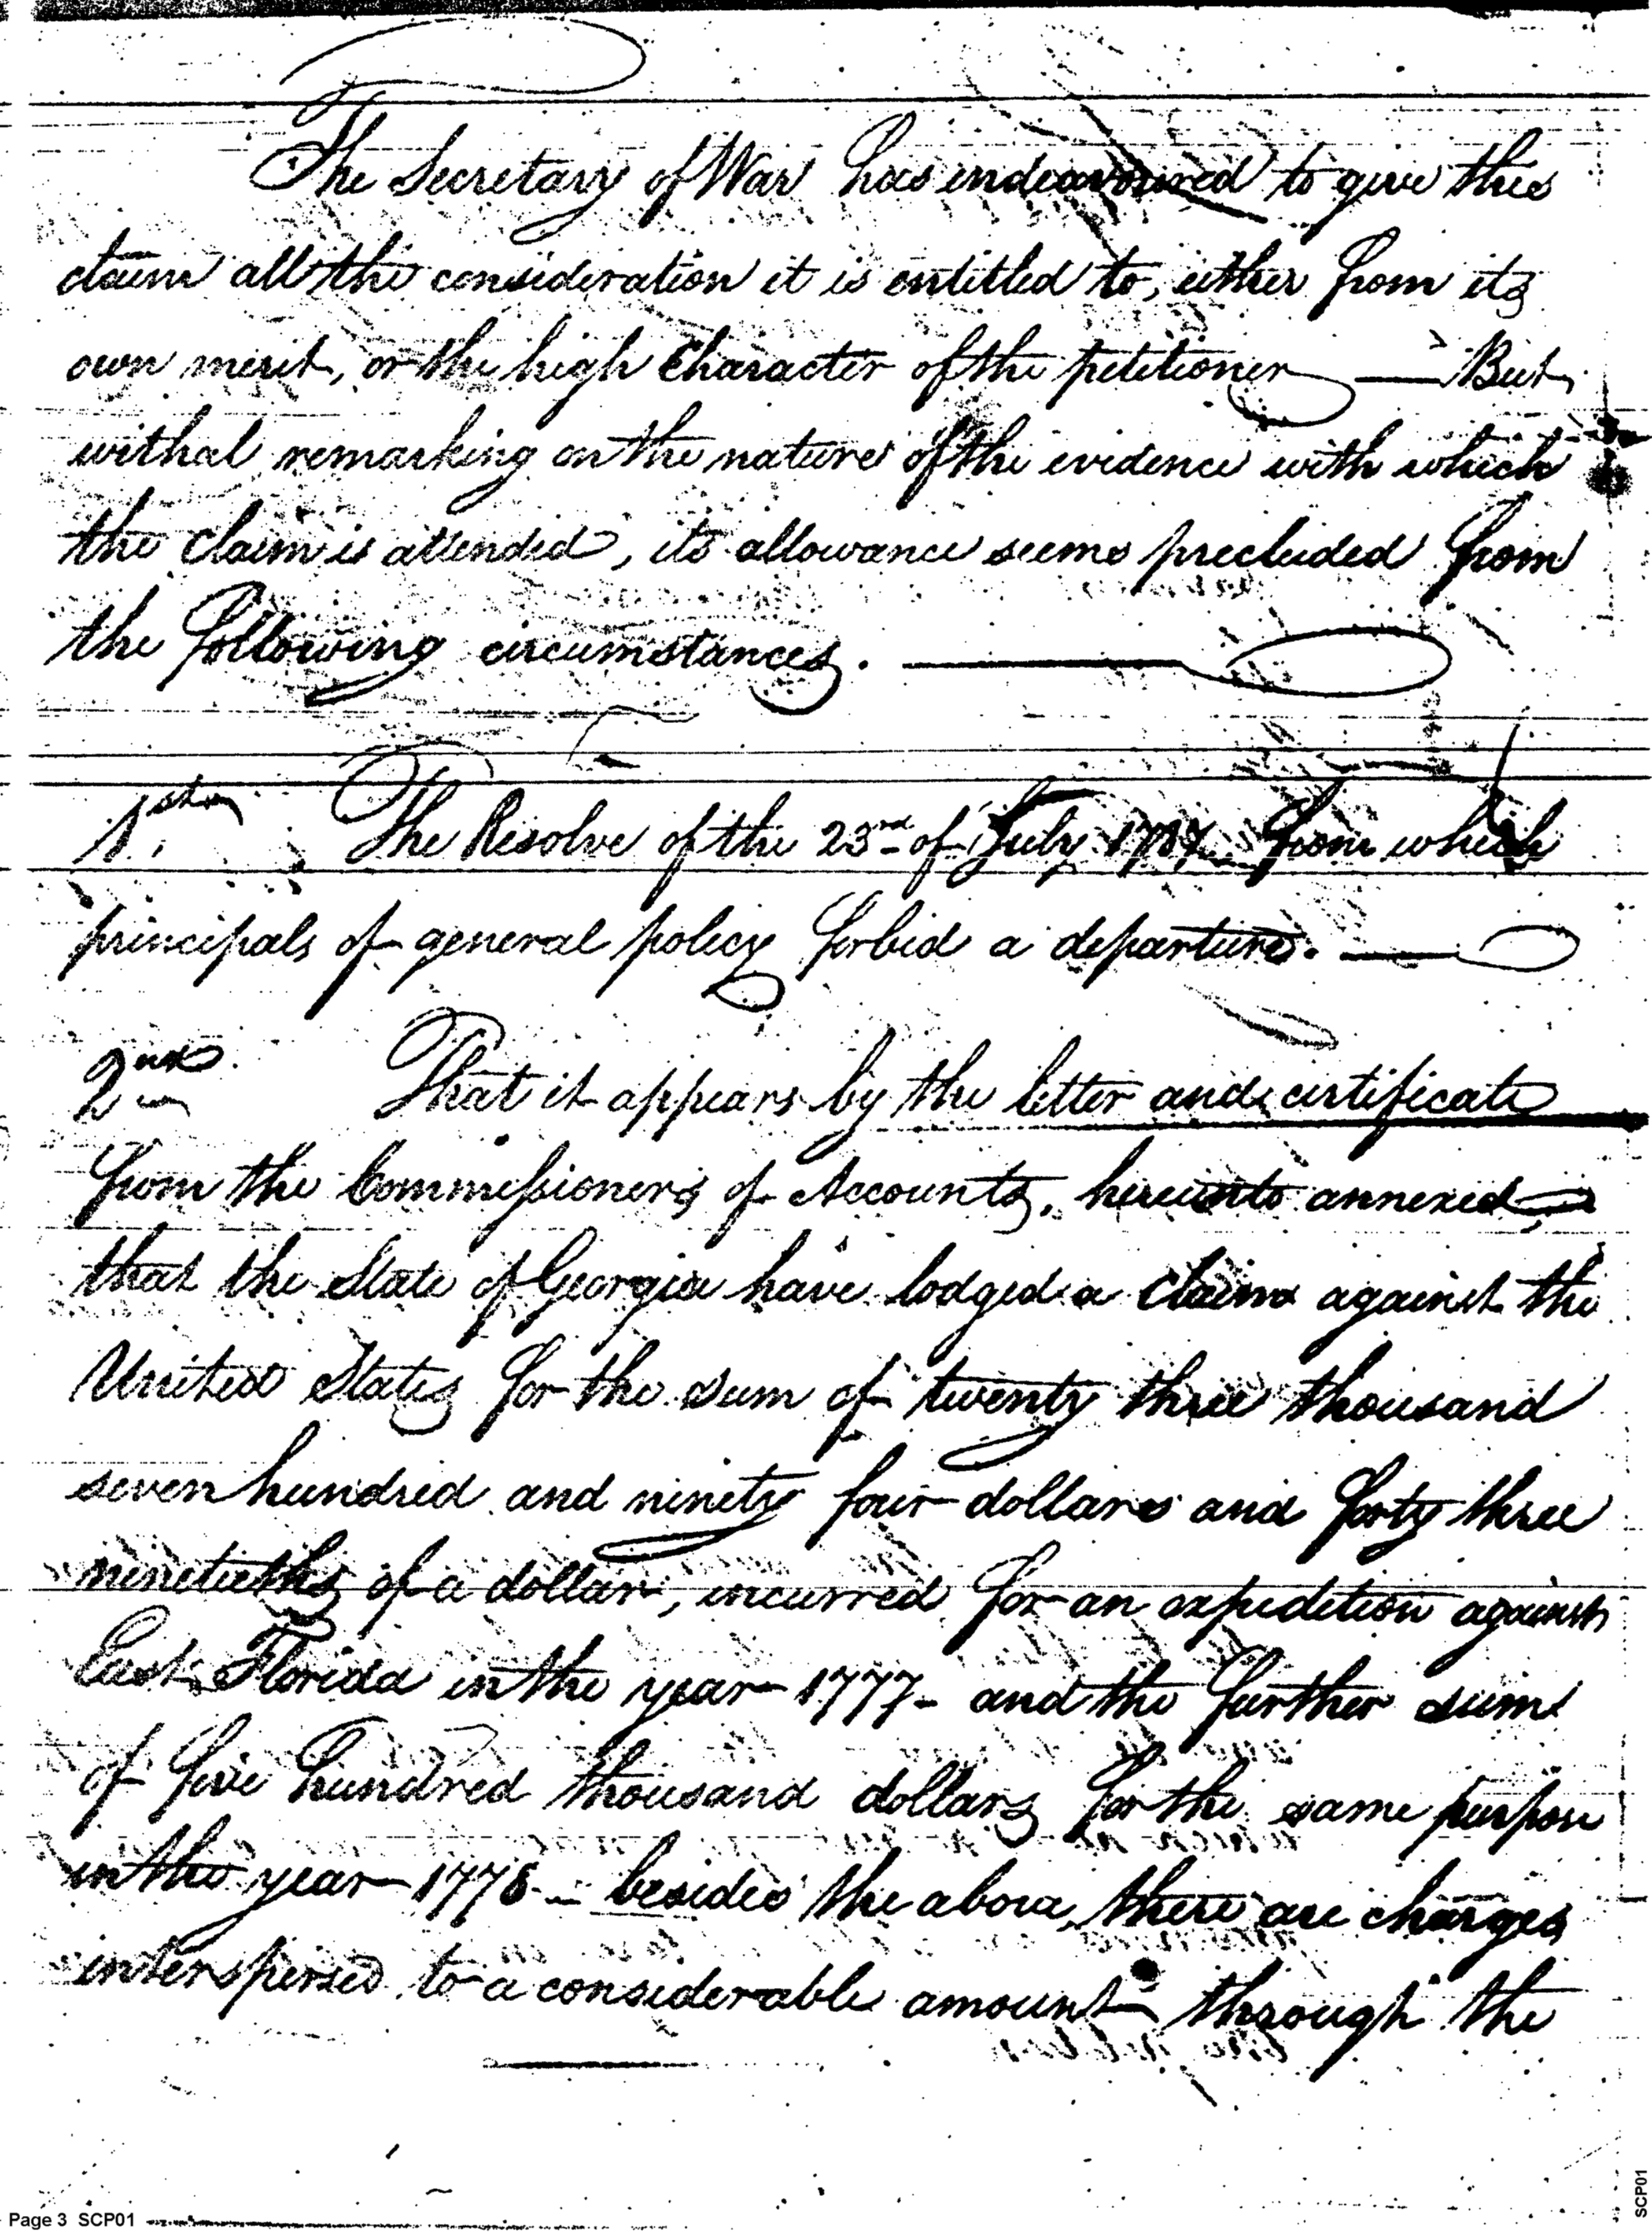 The Secretary of War has endeavoured to give this
claim all the consideration it is entitled to, either from its
own merit, or the high Character of the petitioner — But
withal remarking on the nature of the evidence with which
the claim is attended, its allowance seems precluded from
the following circumstances. —
1st The Resolve of the 23rd of July 1787 from which
principals of general policy forbid a departure. —
2nd That it appears by the letter and certificate
from the Commissioners of Accounts, hereunto annexed,
that the State of Georgia have lodged a Claim against the
United States for the sum of twenty three thousand
seven hundred and ninety four dollars and forty three
ninetieths of a dollar, incurred for an expedition against
East Florida in the year 1777 - and the further sum
of five hundred thousand dollars for the same purpose
in the year 1778 - besides the above, there are charges
interspersed to a considerable amount through the
Page 3 SCP01
SCP01